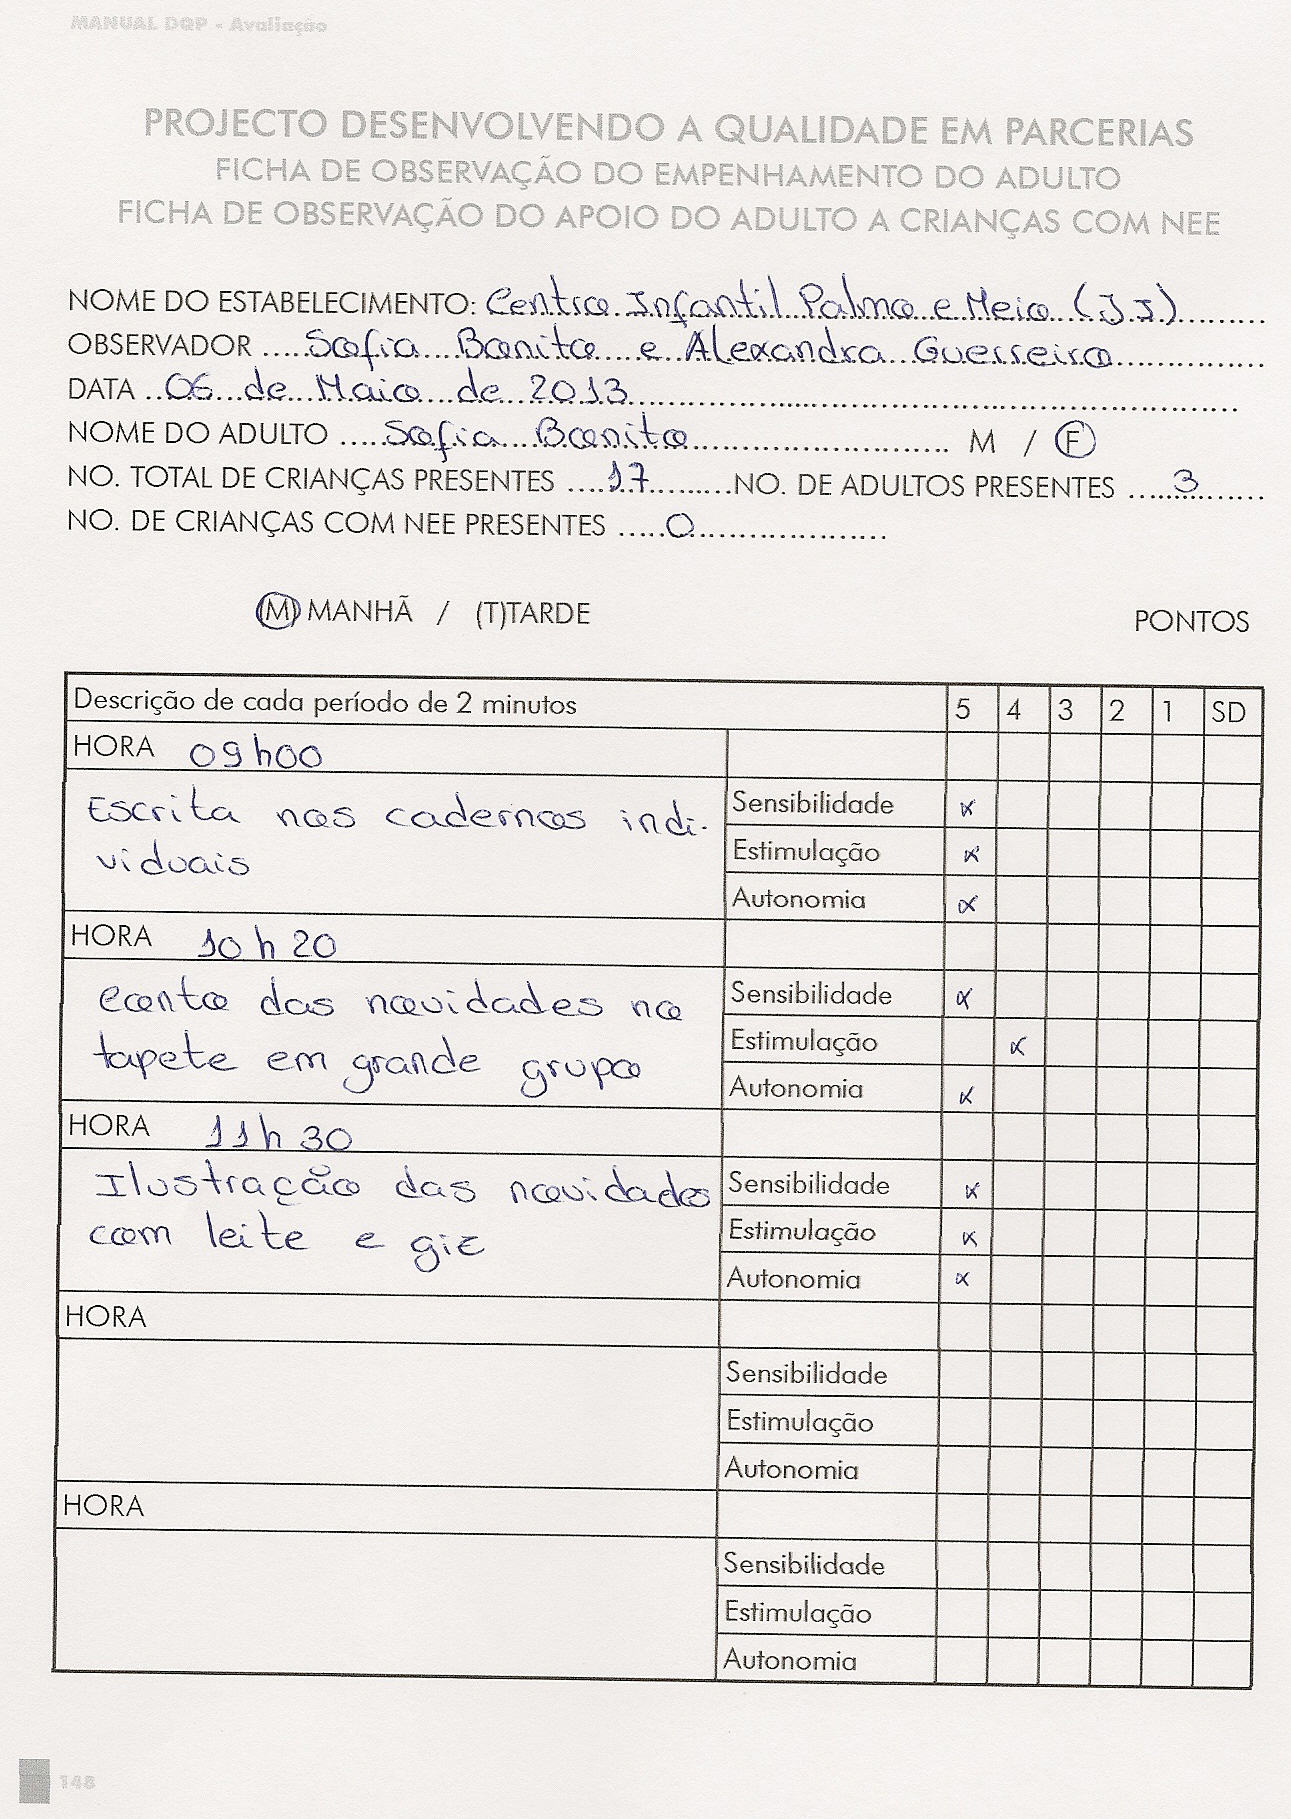 MANUAL DQP - Avaliação
PROJECTO DESENVOLVENDO A QUALIDADE EM PARCERIAS
FICHA DE OBSERVAÇÃO DO EMPENHAMENTO DO ADULTO
FICHA DE OBSERVAÇÃO DO APOIO DO ADULTO A CRIANÇAS COM NEE
NOME DO ESTABELECIMENTO: Centro Infantil Palmo e Meio (J.I)
OBSERVADOR Sofia Bonito e Alexandra Guerreiro
DATA 06 de Maio de 2013
NOME DO ADULTO Sofia Bonito M / F
NO. TOTAL DE CRIANÇAS PRESENTES 17 NO. DE ADULTOS PRESENTES 3
NO. DE CRIANÇAS COM NEE PRESENTES 0
(M) MANHÃ / (T)TARDE PONTOS
Descrição de cada período de 2 minutos 5 4 3 2 1 SD
HORA 09h00
Escrita nos cadernos indi-
viduais
Sensibilidade x
Estimulação x
Autonomia x
HORA 10h20
Conto das novidades no
tapete em grande grupo
Sensibilidade x
Estimulação x
Autonomia x
HORA 11h30
Ilustração das novidades
com leite e giz
Sensibilidade x
Estimulação x
Autonomia x
HORA
Sensibilidade
Estimulação
Autonomia
HORA
Sensibilidade
Estimulação
Autonomia
148